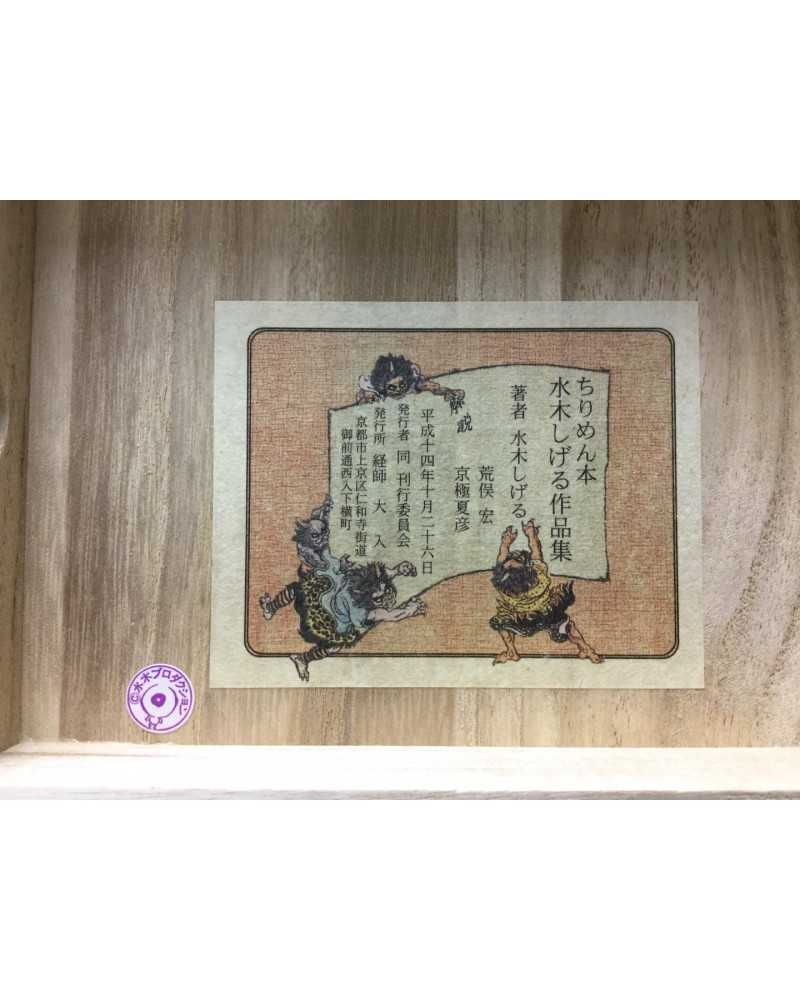 ちりめん本
水木しげる作品集
著者 水木しげる
解説
荒俣 宏
京極夏彦
平成十四年十月二十六日
発行者 同 刊行委員会
発行所 経師 大入
京都市上京区仁和寺街道
御前通西入下横町
©水木プロダクション